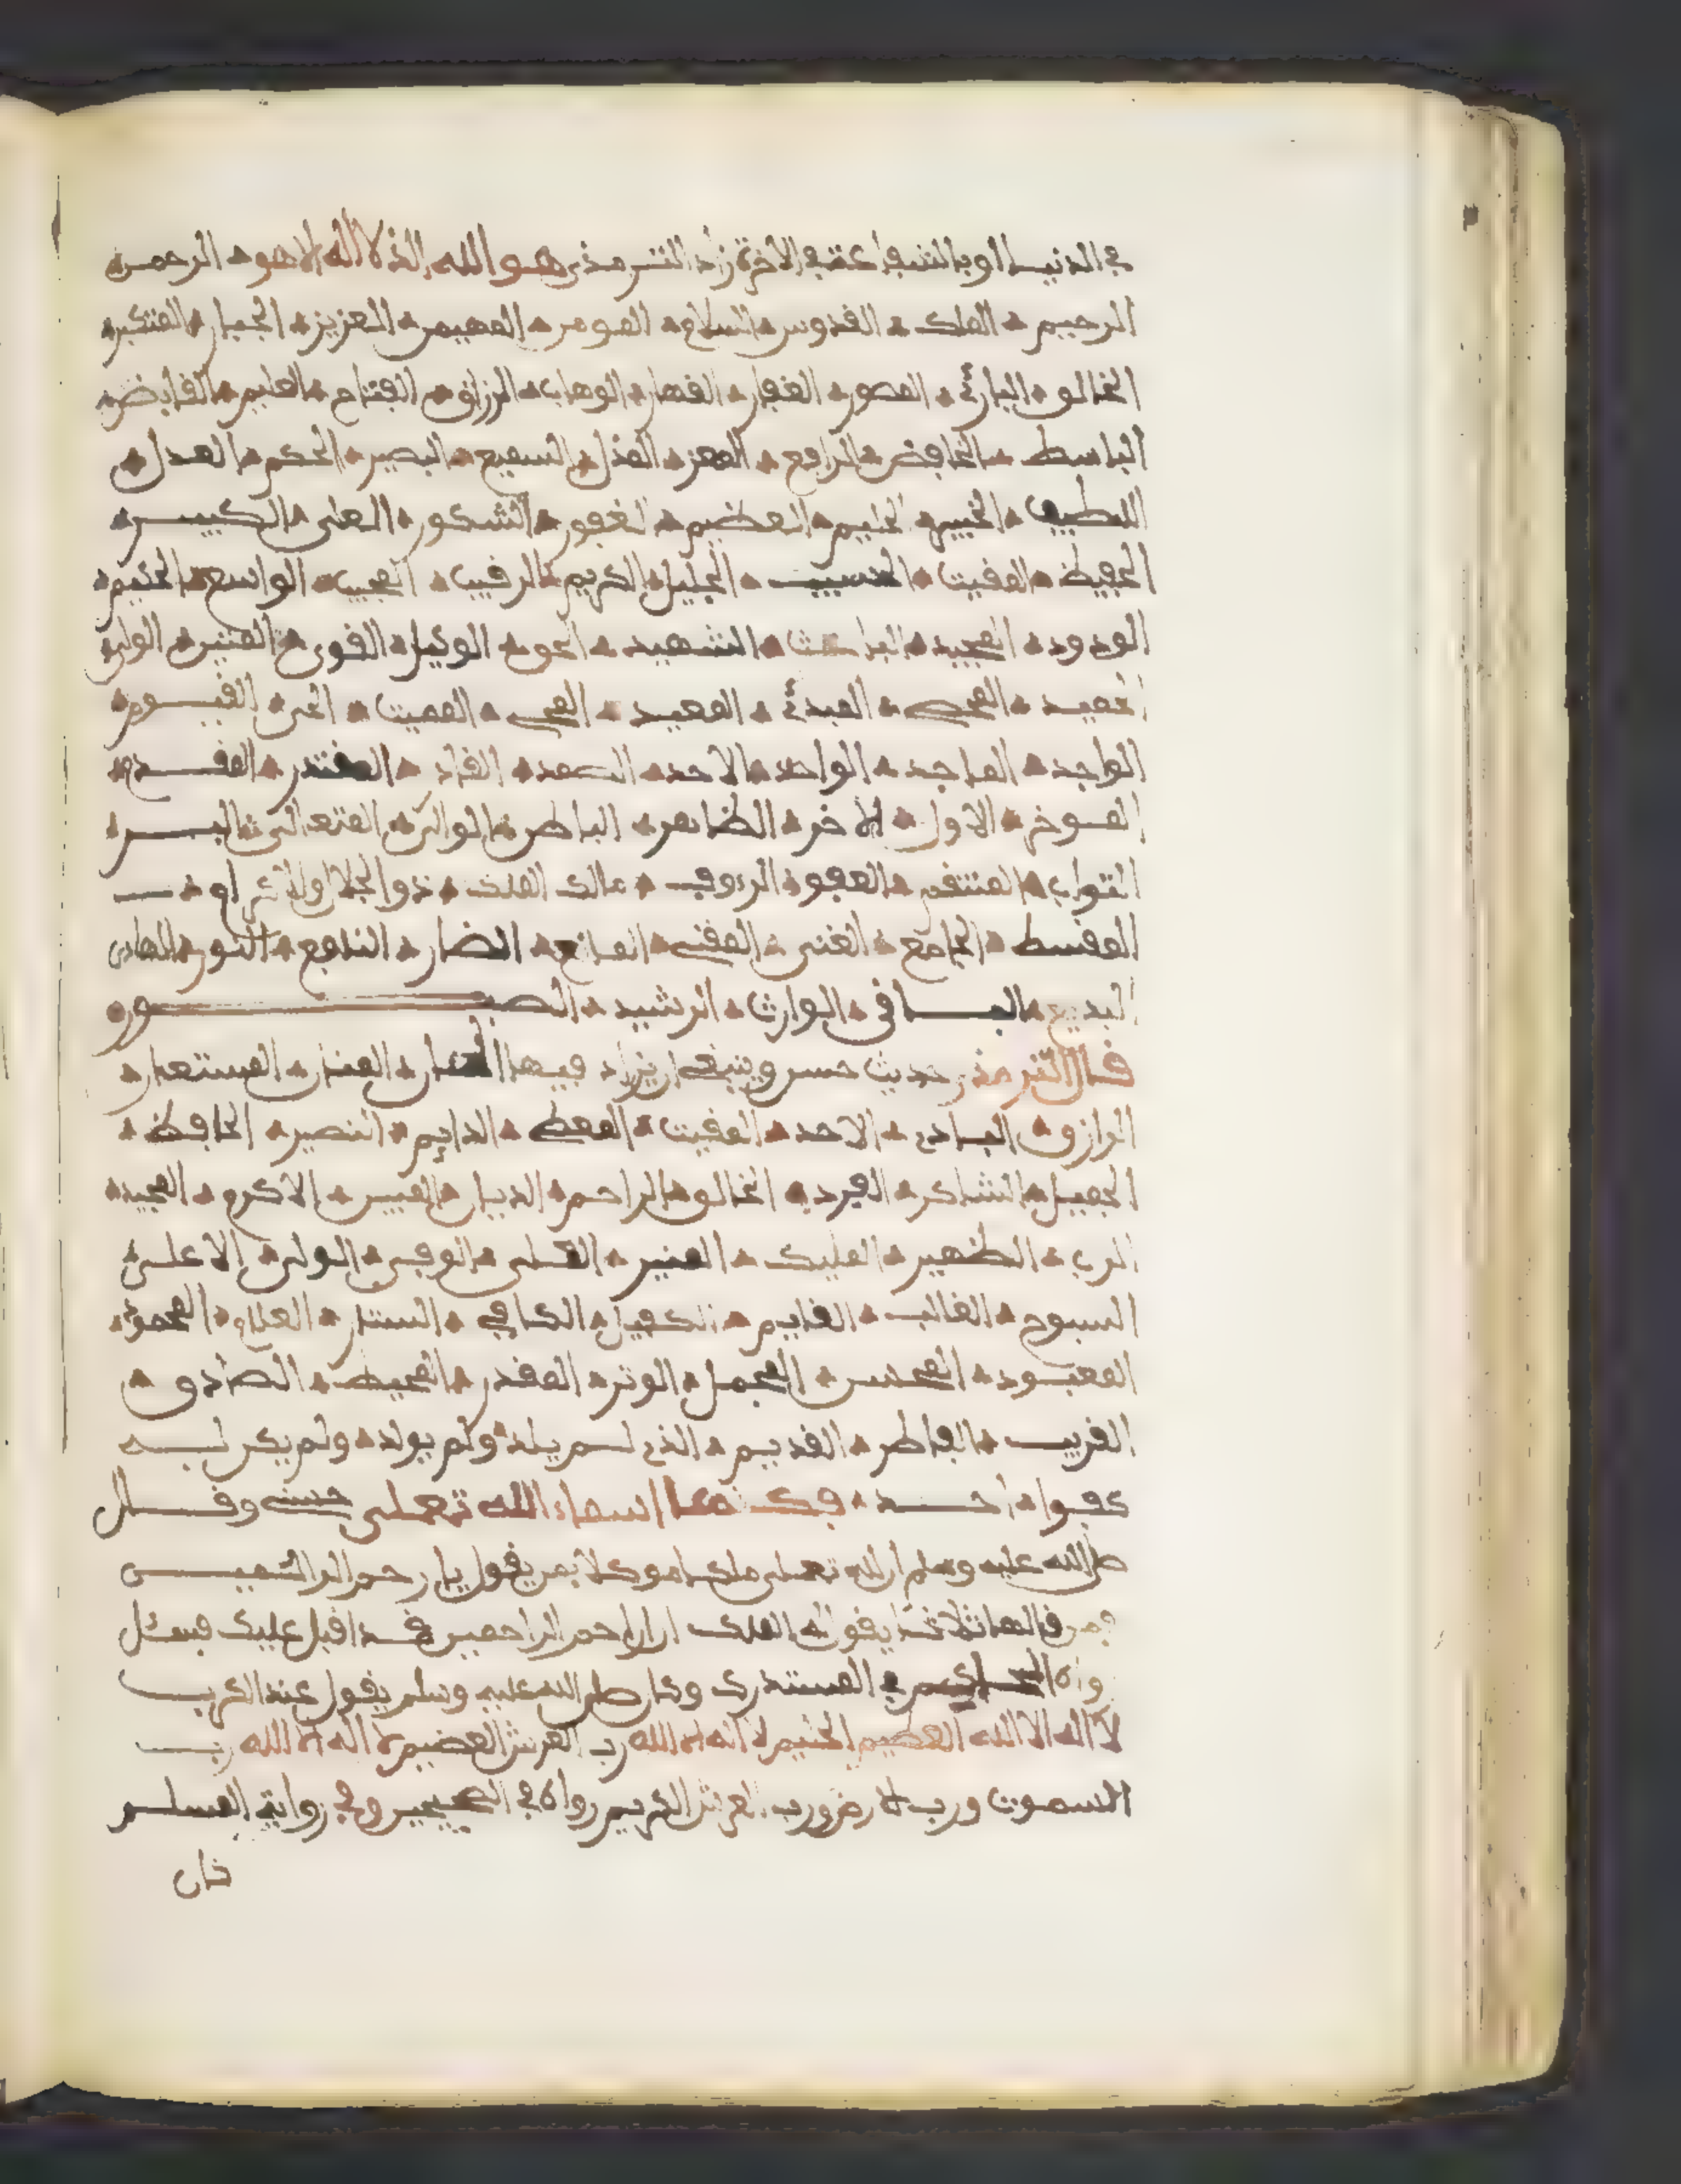 في الدنيا او بالشفاعة في الاخرة زاد الترمذي هو الله الذي لا اله الا هو الرحمن
الرحيم الملك القدوس السلام المومن المهيمن العزيز الجبار المتكبر
الخالق البارئ المصور الغفار القهار الوهاب الرزاق الفتاح العليم القابض
الباسط الخافض الرافع المعز المذل السميع البصير الحكم العدل
اللطيف الخبير الحليم العظيم الغفور الشكور العلي الكبير
الحفيظ المقيت الحسيب الجليل الكريم الرقيب المجيب الواسع الحكيم
الودود المجيد الباعث الشهيد الحق الوكيل القوي المتين الولي
الحميد المحصي المبدئ المعيد المحي المميت الحي القيوم
الواجد الماجد الواحد الاحد الصمد القادر المقتدر المقدم
الموخر الاول الاخر الظاهر الباطن الوالي المتعالي البر
التواب المنتقم العفو الرءوف مالك الملك ذو الجلال والاكرام
المقسط الجامع الغني المغني المانع الضار النافع النور الهادي
البديع الباقي الوارث الرشيد الصبور
قال الترمذي حديث حسن وينبغي ان يزاد فيها الحنان المنان المستعان
الرازق البادئ الاحد المقيت المعطي الدايم النصير الحافظ
الجميل الشاكر الفرد الخالق الراحم الديان المبين الاكرم المجيد
الرب الظهير المليك المنير الوفي الولي الاعلى
السبوح الغالب القايم الكفيل الكافي الستار العلام المحمود
المعبود المحسن المجمل الوتر المقدر المحيط الصادق
القريب الفاطر القديم الذي لم يلد ولم يولد ولم يكن له
كفوا احد اسماء الله تعلى حسنى وقال
صلى الله عليه وسلم ان لله تعلى ملكا موكلا بمن يقول يا ارحم الراحمين
فمن قالها ثلاثا يقول له الملك ان ارحم الراحمين قد اقبل عليك فسئل
رواه الحاكم في المستدرك وكان صلى الله عليه وسلم يقول عند الكرب
لا اله الا الله العظيم الحليم لا اله الا الله رب العرش العظيم لا اله الا الله رب
السموت ورب الارض ورب العرش الكريم رواه في الصحيحين وفي رواية لمسلم
كان